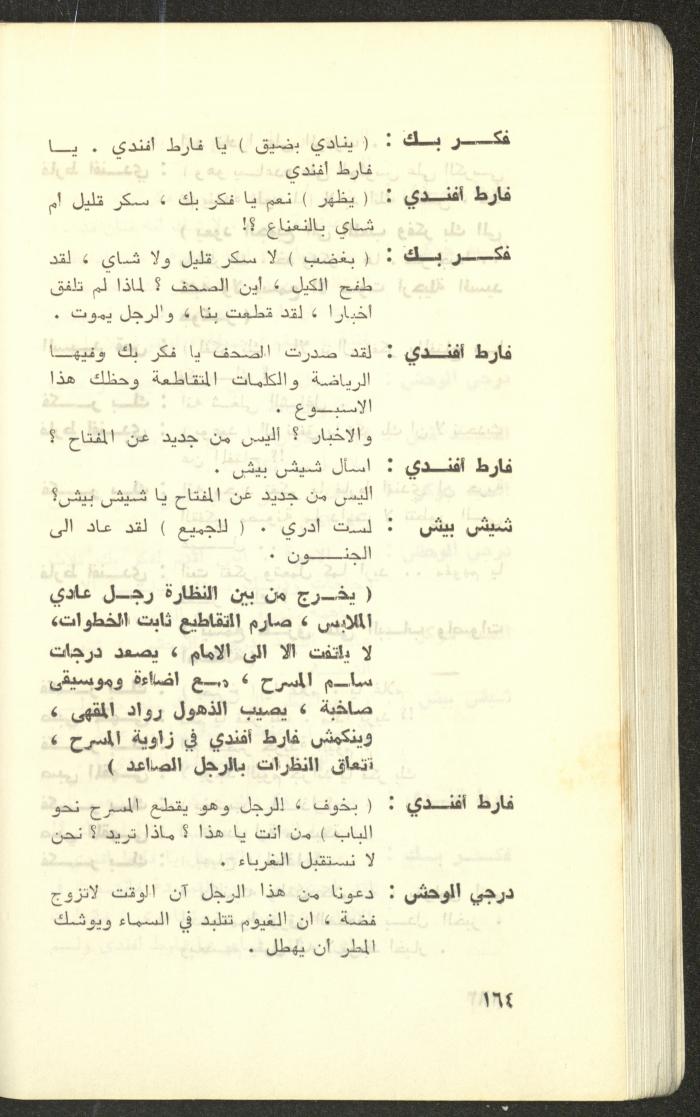 فكـــر بــك : ( ينادي بضيق ) يا فارط افندي . يــا
فارط افندي
فارط أفنـدي : ( يظهر ) نعم يا فكر بك ، سكر قليل ام
شاي بالنعناع ؟!
فكـــر بــك : ( بغضب ) لا سكر قليل ولا شاي ، لقد
طفح الكيل ، أين الصحف ؟ لماذا لم تلفق
اخبارا ، لقد قطعت بنا ، والرجل يموت .
فارط أفنـدي : لقد صدرت الصحف يا فكر بك وفيهــا
الرياضة والكلمات المتقاطعة وحظك هذا
الاسبــوع .
والاخبار ؟ أليس من جديد عن المفتاح ؟
فارط أفنـدي : اسأل شيش بيش .
اليس من جديد عن المفتاح يا شيش بيش؟
شيش بيش : لست ادري . ( للجميع ) لقد عاد الى
الجنـــون .
( يخــرج من بين النظارة رجــل عادي
الملابس ، صارم التقاطيع ثابت الخطوات،
لا يلتفت الا الى الامام ، يصعد درجات
سلــم المسرح ، مــع اضاءة وموسيقى
صاخبة ، يصيب الذهول رواد المقهى ،
وينكمش فارط أفندي في زاوية المسرح ،
تتعلق النظرات بالرجل الصاعد )
فارط أفنـدي : ( بخوف ، الرجل وهو يقطع المسرح نحو
الباب ) من انت يا هذا ؟ ماذا تريد ؟ نحن
لا نستقبل الغرباء .
درجي الوحش : دعونا من هذا الرجل آن الوقت لاتزوج
فضة ، ان الغيوم تتلبد في السماء ويوشك
المطر ان يهطل .
١٦٤